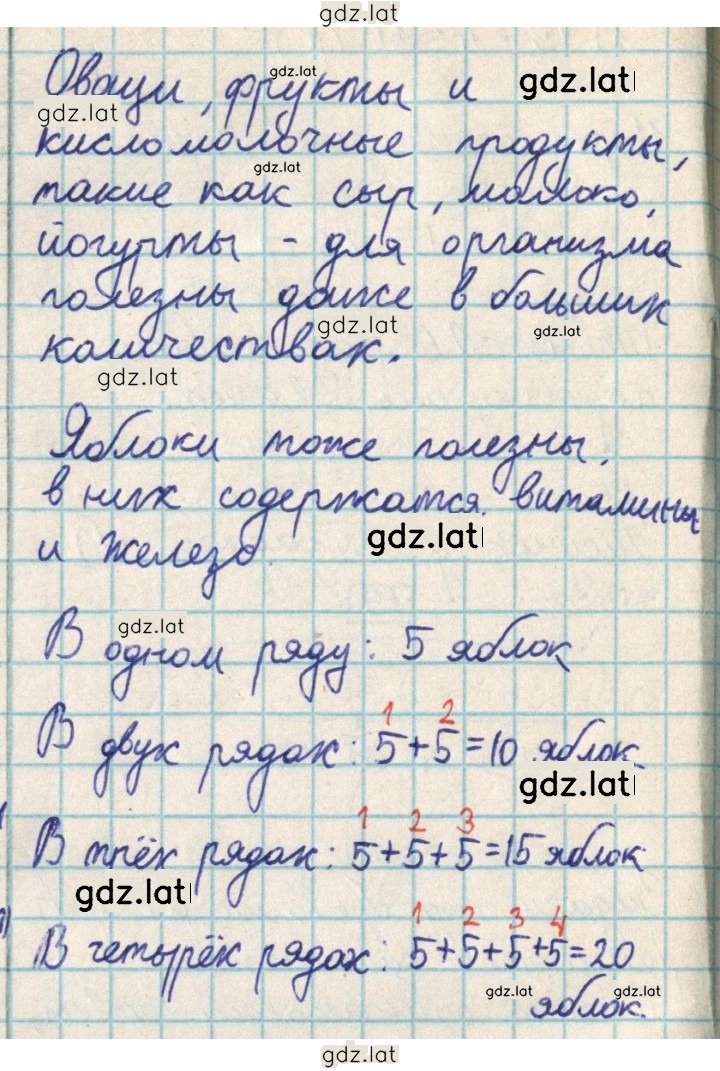 gdz.lat
Овощи, фрукты и
gdz.lat
gdz.lat
gdz.lat
кисломолочные продукты,
gdz.lat
такие как сыр, молоко,
йогурты - для организма
полезны даже в больших
gdz.lat
gdz.lat
количествах.
gdz.lat
Яблоки тоже полезны,
в них содержатся витамины
и железо.
gdz.lat
gdz.lat
В одном ряду: 5 яблок
1 2
В двух рядах: 5+5=10 яблок.
gdz.lat
1 2 3
В трёх рядах: 5+5+5=15 яблок
gdz.lat
1 2 3 4
В четырёх рядах: 5+5+5+5=20
gdz.lat
gdz.lat
яблок.
gdz.lat